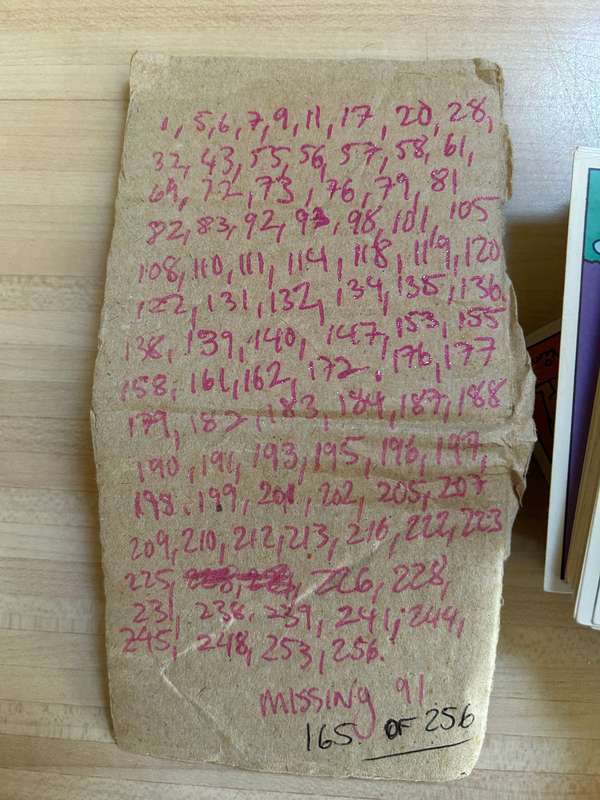 1, 5, 6, 7, 9, 11, 17, 20, 28,
32, 43, 55, 56, 57, 58, 61,
69, 72, 73, 76, 79, 81
82, 83, 92, 93, 98, 101, 105
108, 110, 111, 114, 118, 119, 120
122, 131, 132, 134, 135, 136,
138, 139, 140, 147, 153, 155
158, 161, 162, 172, 176, 177
179, 182, 183, 184, 187, 188
190, 191, 193, 195, 196, 197,
198, 199, 201, 202, 205, 207
209, 210, 212, 213, 216, 222, 223
225, 226, 228,
231, 238, 239, 241, 244,
245, 248, 253, 256.
MISSING 91.
165 OF 256